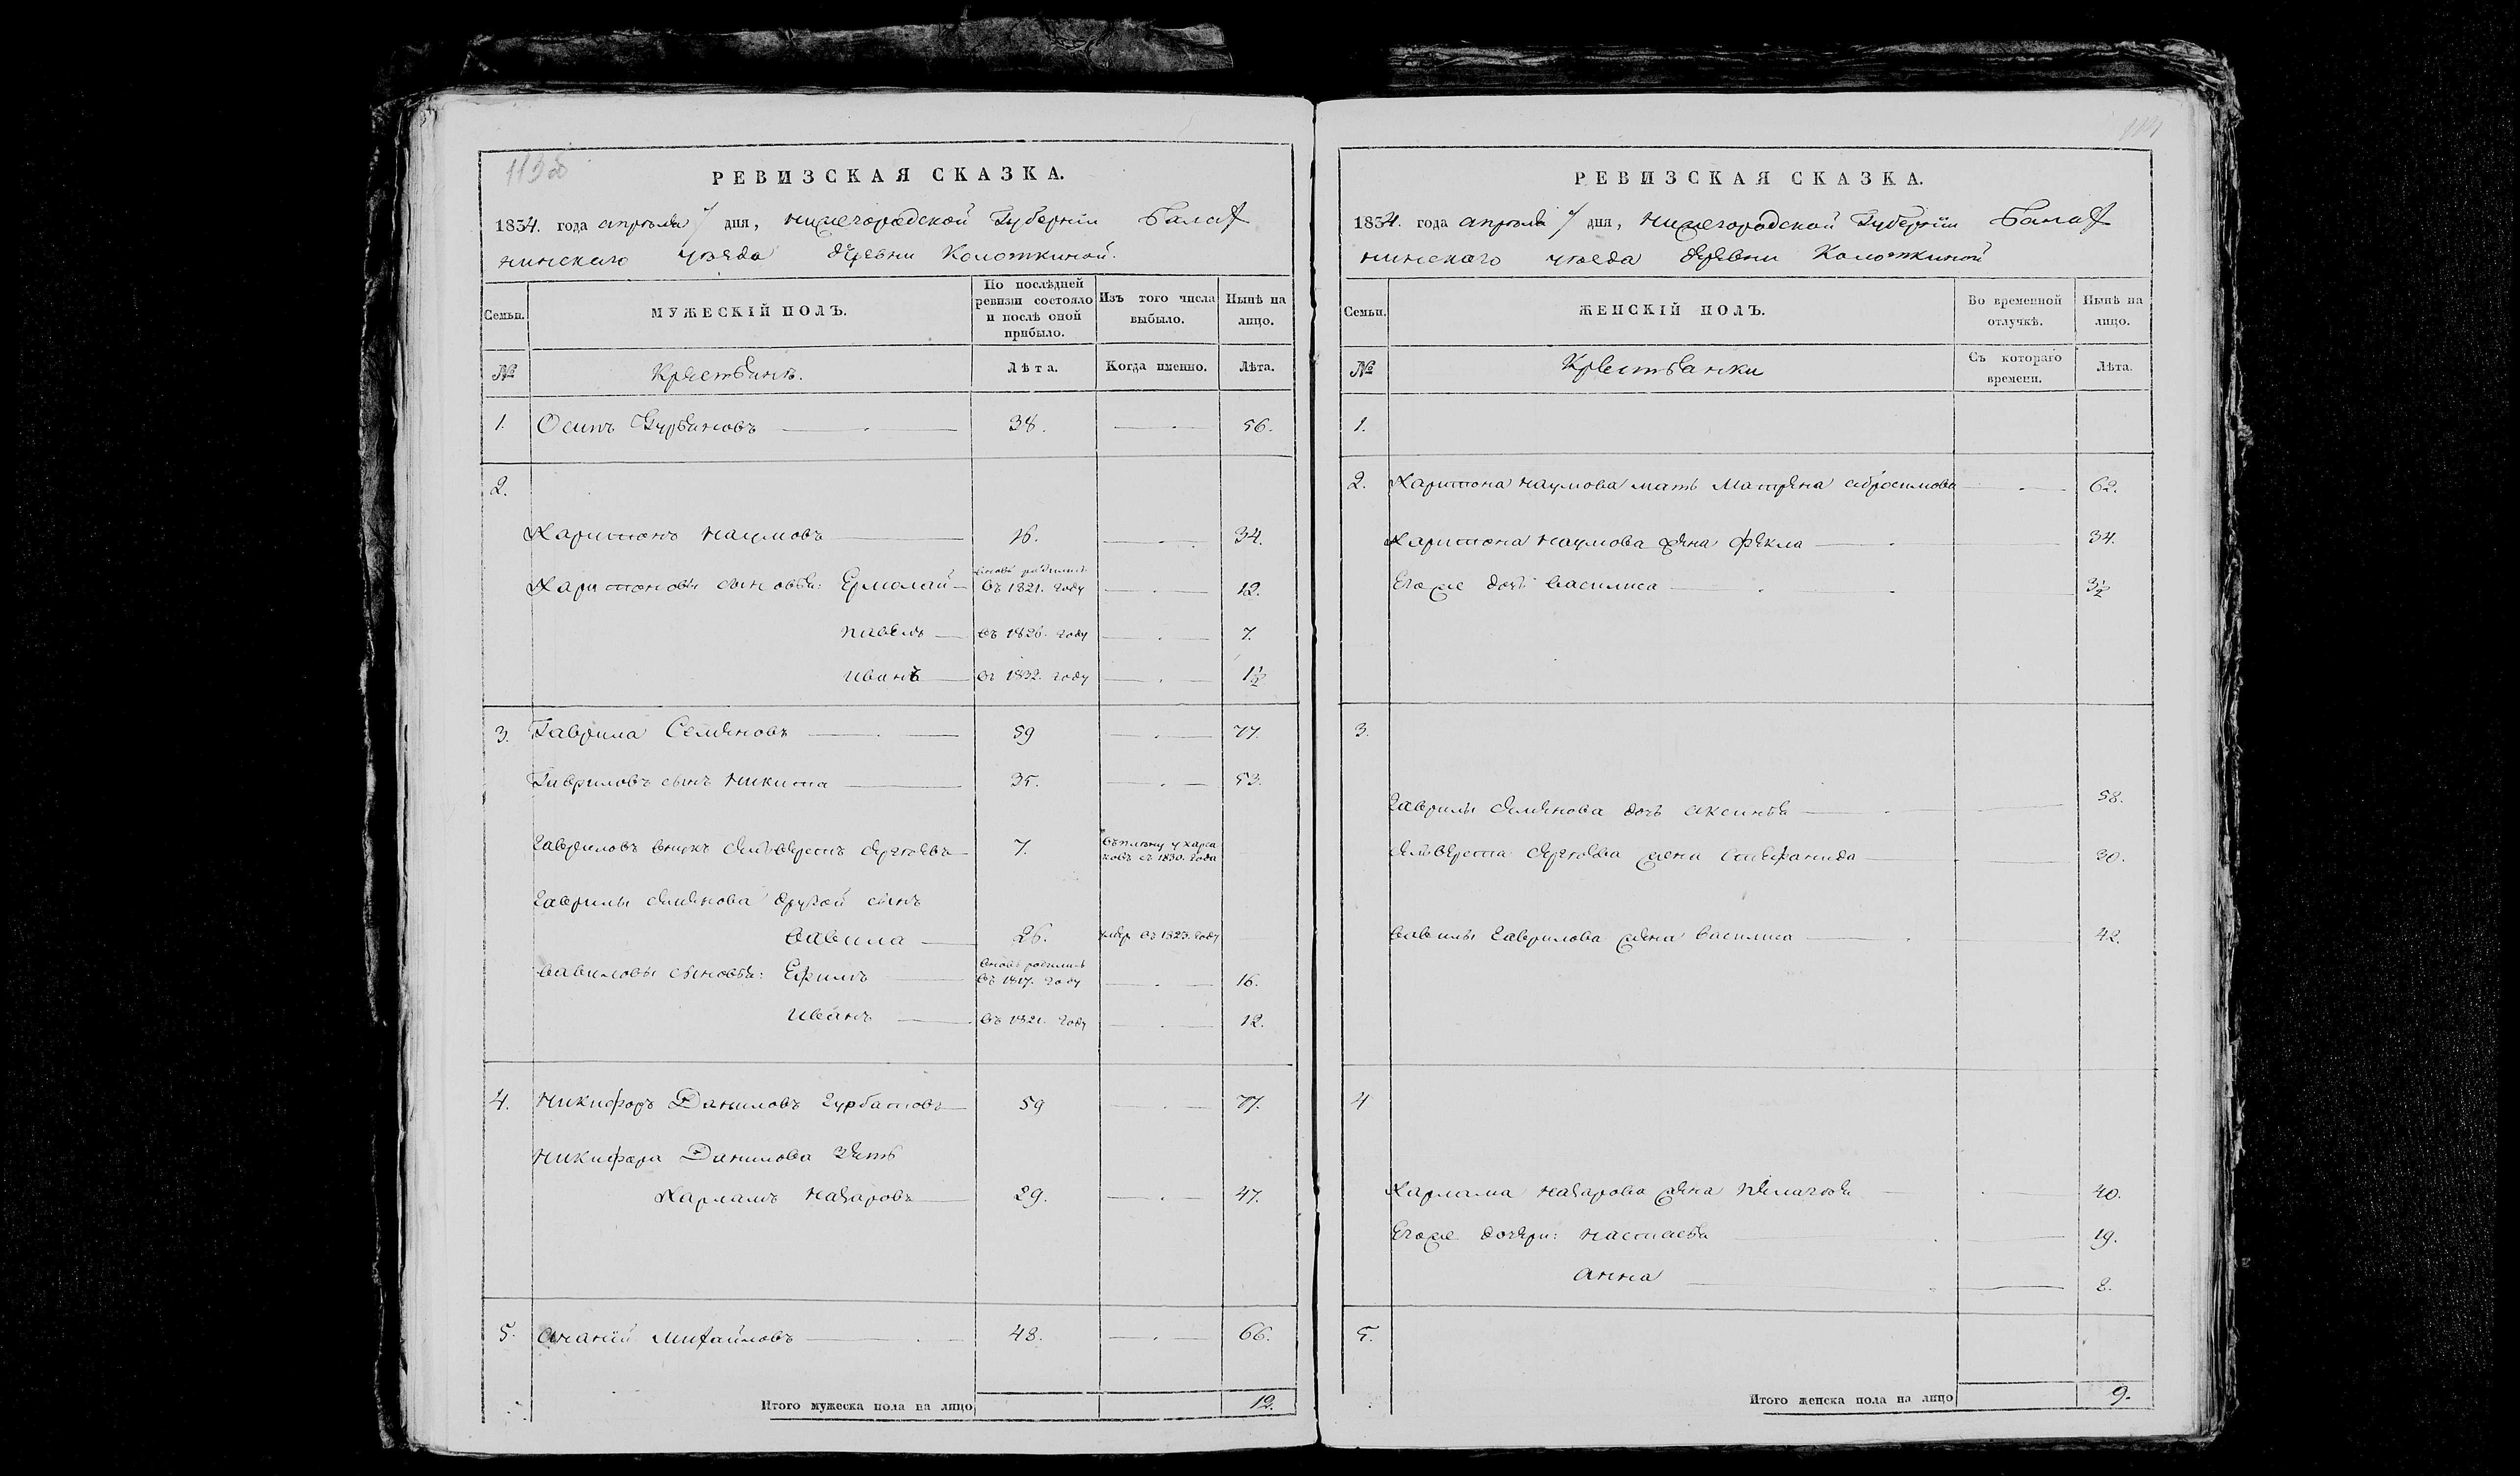 113об
РЕВИЗСКАЯ СКАЗКА.
1834. года апреля дня, нижегородской Губернiи Балах
нинскаго уѣзда деревни Колоткиной.
Семьи.
МУЖЕСКIЙ ПОЛЪ.
По послѣдней ревизiи состояло и послѣ оной прибыло.
Изъ того числа выбыло.
Нынѣ на лицо.
№
Крестьянъ.
Лѣта.
Когда именно.
Лѣта.
1. Осипъ 38. 56.
2.
Харитонъ Наумовъ 16. 34.
Харитоновы сыновья: Ермолай вновь родились въ 1821. году 12.
павелъ въ 1826. году 7.
иванъ въ 1832. году 1½
3. Гаврила Семеновъ 59 77.
Гавриловъ сынъ никита 35. 53.
Гавриловъ внукъ селиверстъ сергѣевъ 7. въ 1830. года
Гаврилы семенова другой сынъ
вавила 26. умер въ 1823. году
вавиловы сыновья: Ефимъ вновь родились въ 1817. году 16.
иванъ въ 1821. году 12.
4. никифоръ Даниловъ Гурбатовъ 59 77.
никифора Данилова зять
Харламъ назаровъ 29. 47.
5. ананiй михайловъ 48. 66.
Итого мужеска пола на лицо 12.
РЕВИЗСКАЯ СКАЗКА.
1834. года апреля дня, нижегородской Губернiи Балах
нинскаго уѣзда деревни Колоткиной
Семьи.
ЖЕНСКIЙ ПОЛЪ.
Во временной отлучкѣ.
Нынѣ на лицо.
№
Крестьянки
Съ котораго времени.
Лѣта.
1.
2. Харитона наумова мать матрена абросимова 62.
Харитона наумова жена фекла 34.
Егоже дочь василиса 3½
3.
Гаврилы семенова дочь аксинья 58.
селиверста сергѣева жена степанида 30.
вавилы гаврилова жена василиса 42.
4
Харлама назарова жена пелагѣя 40.
Егоже дочери: настасья 19.
анна 8.
5.
Итого женска пола на лицо 9.